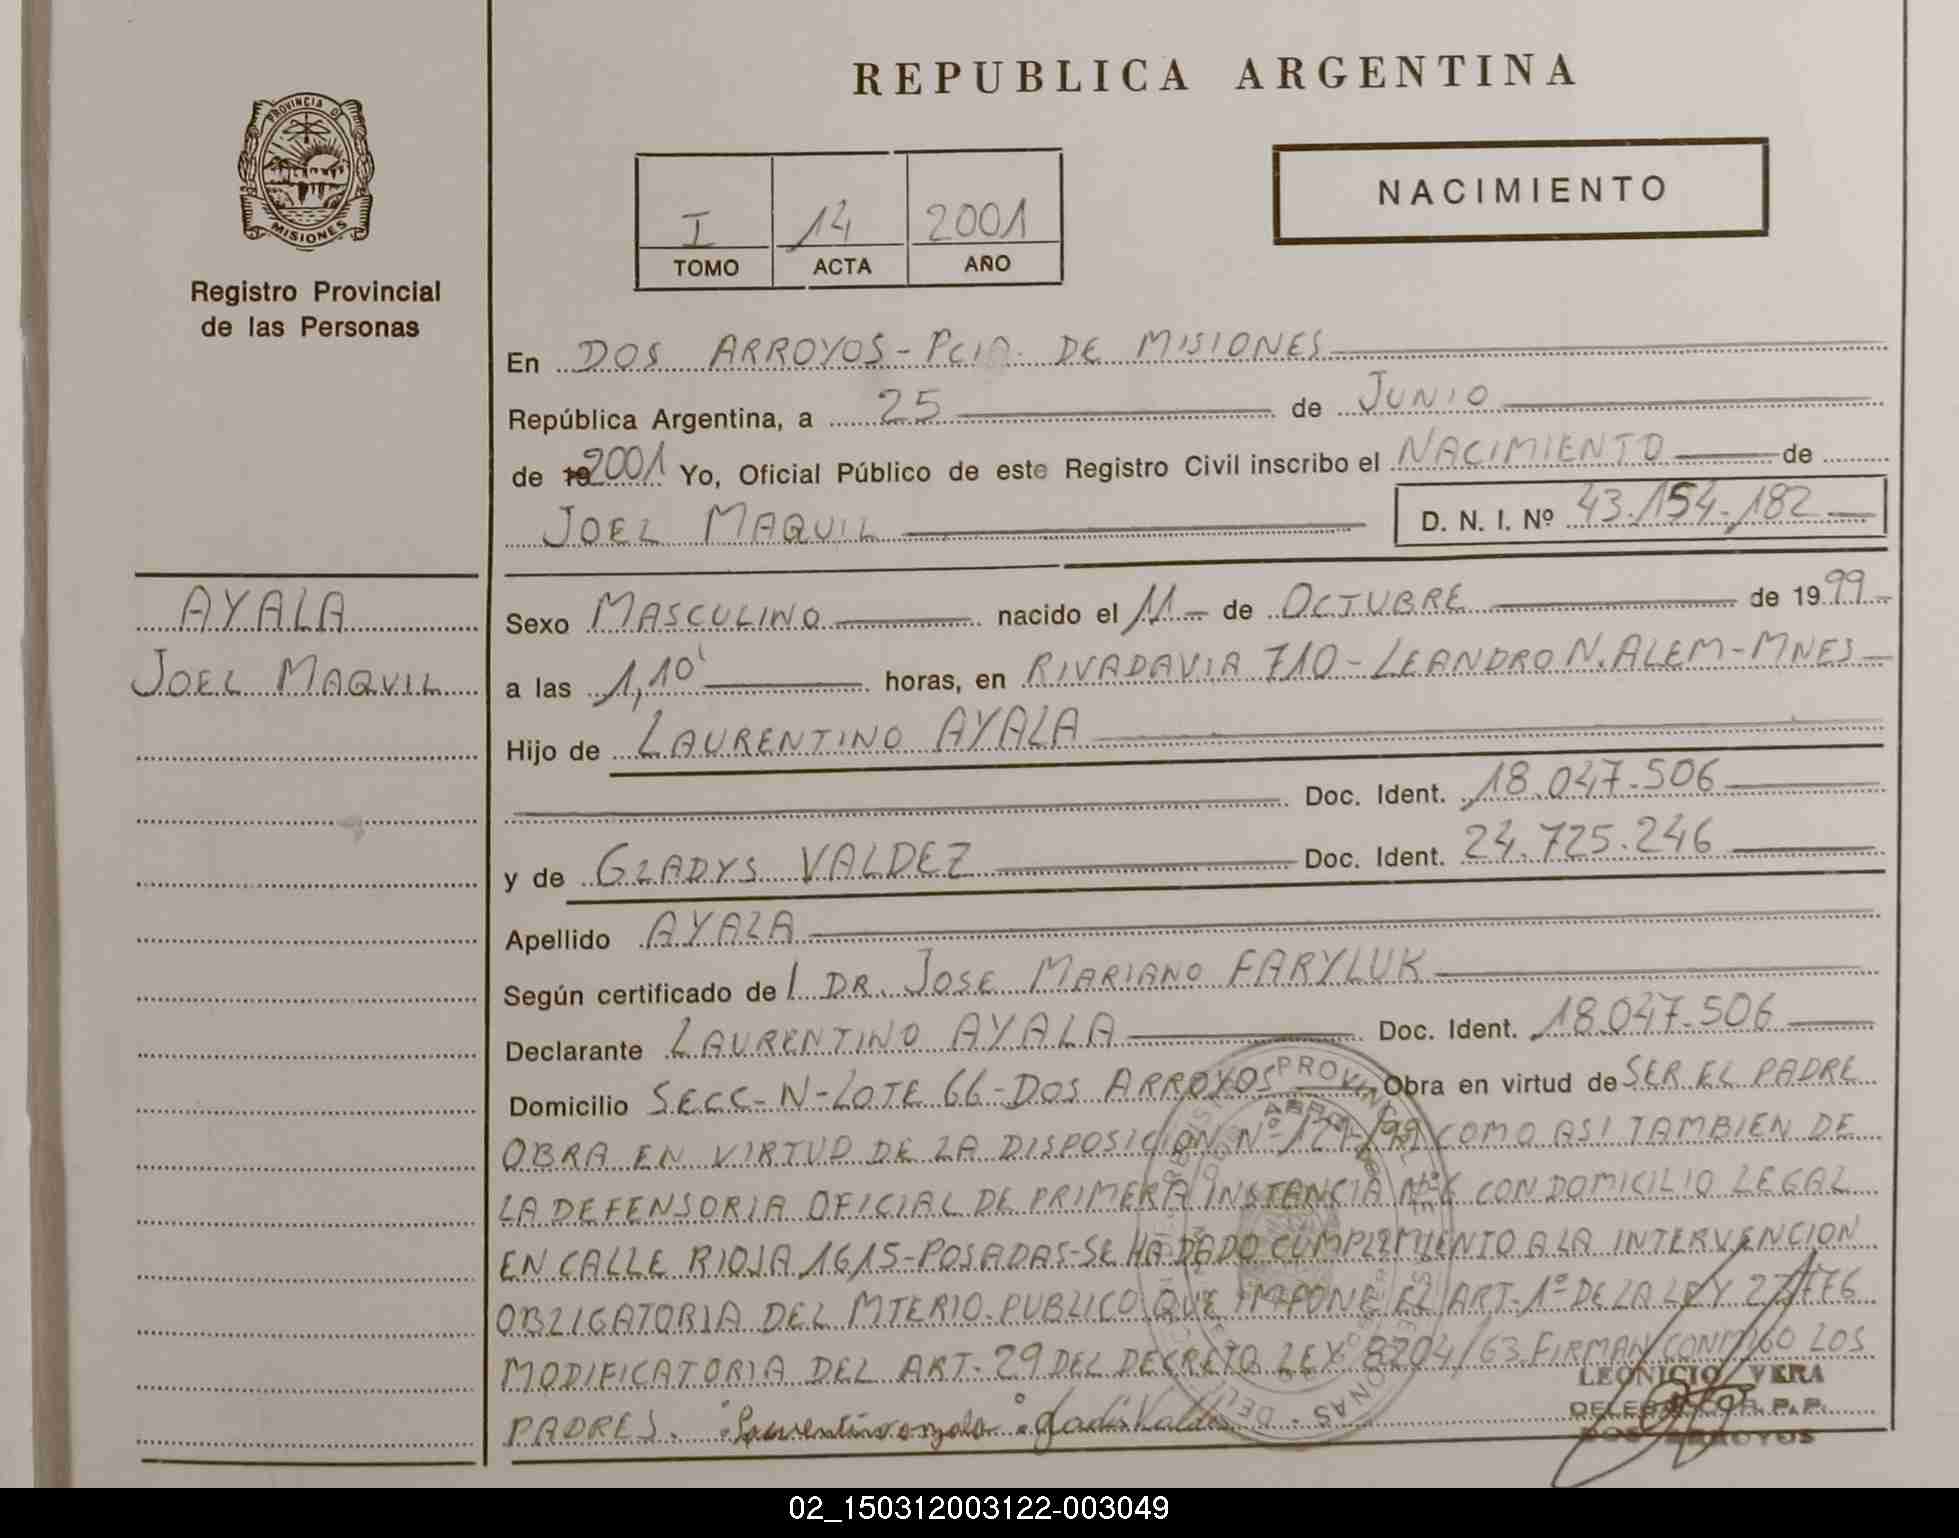 REPUBLICA ARGENTINA
PROVINCIA DE
MISIONES
Registro Provincial
de las Personas
NACIMIENTO
I 14 2001
TOMO ACTA AÑO
En DOS ARROYOS - PCIA. DE MISIONES
República Argentina, a 25 de JUNIO
de 19 2001 Yo, Oficial Público de este Registro Civil inscribo el NACIMIENTO de
JOEL MAQUIL D. N. I. Nº 43.154.182
AYALA
JOEL MAQUIL
Sexo MASCULINO nacido el 11 de OCTUBRE de 1999
a las 1,10' horas, en RIVADAVIA 710 - LEANDRO N. ALEM - MNES
Hijo de LAURENTINO AYALA
Doc. Ident. 18.047.506
y de GLADYS VALDEZ Doc. Ident. 24.725.246
Apellido AYALA
Según certificado del DR. JOSE MARIANO FARYLUK
Declarante LAURENTINO AYALA Doc. Ident. 18.047.506
Domicilio SECC - N - LOTE 66 - DOS ARROYOS Obra en virtud de SER EL PADRE
OBRA EN VIRTUD DE LA DISPOSICION Nº COMO ASI TAMBIEN DE
LA DEFENSORIA OFICIAL DE PRIMERA INSTANCIA CON DOMICILIO LEGAL
EN CALLE RIOJA 1615 - POSADAS - SE HA DADO CUMPLIMIENTO A LA INTERVENCION
OBLIGATORIA DEL MTERIO. PUBLICO QUE IMPONE EL ART. 1º DE LA LEY
MODIFICATORIA DEL ART. 29 DEL DECRETO LEY 8204/63. FIRMAN CONMIGO LOS
PADRES.
LEONICIO VERA
DOS ARROYOS
02_150312003122-003049